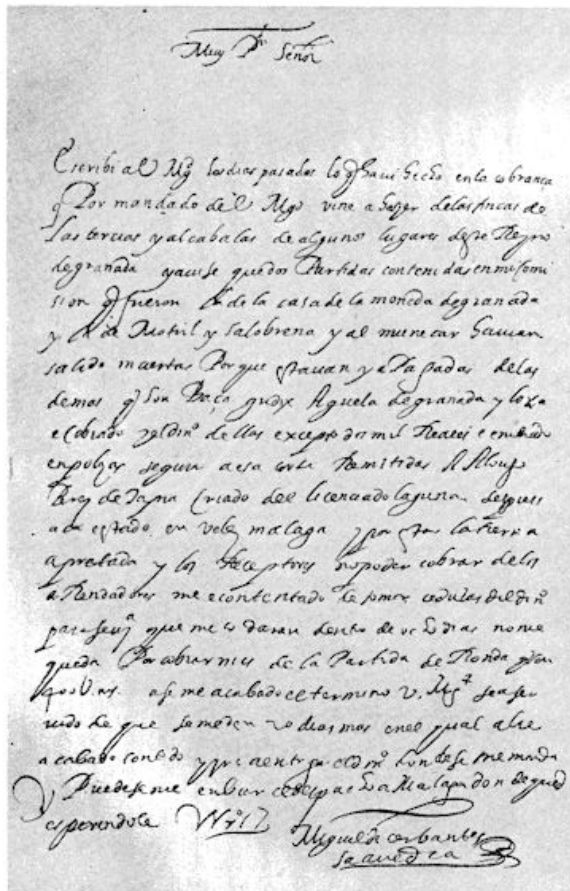 Muy P.or Señor
Escribi al Mg los dias pasados lo q havi hecho en la cobrança
q Por mandado de Mg vine a hazer de las fincas de
las tercias y alcabalas de algunos lugares deste Reyno
de granada y avise que dos Partidas contenidas en mi comi
sion q fueron la de la casa de la moneda de granada
y la de Motril y salobrena y al munecar havian
salido inciertas Porque estavan ya Pagadas de las
demas q son Baça guadix Aguela de granada y loxa
e cobrado el din.o dellas excepto dos mil Reales e enviado
en polizas seguras a esa corte Remitidas A
de Tapia criado del licenciado laguna despues
aca e estado en velez malaga y por estar la tierra
apretada y los Receptores no poder cobrar de los
a Rendadores me e contentado de tomar cedulas del din.o
para sevi.a que me les daran dentro de ocho dias no me
queda Por cobrar mas de la Partida de Ronda
asi me a acabado el termino v. Mg.d sea ser
vido de que se me den 20 dias mas en el qual abre
acabado con todo y yre a entregar el din.o donde se me manda
y Puedeseme enbiar el despacho a Malaga donde quedo
esperandole
Miguel de cerbantes
saavedra